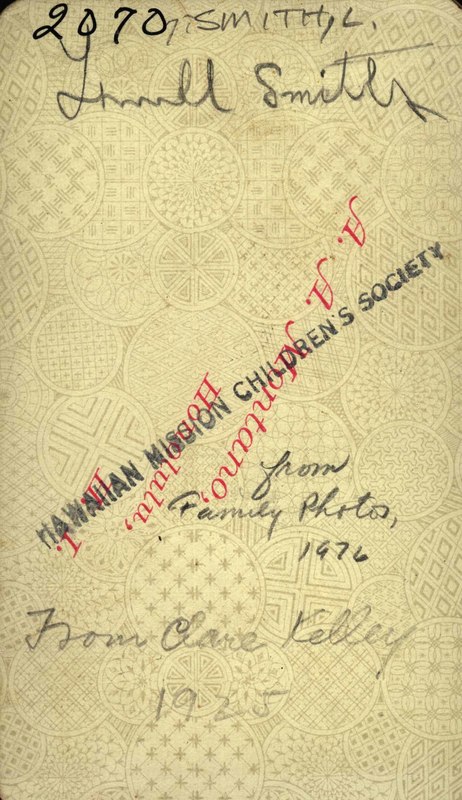 2070, SMITH, L.
Lowell Smith
A. A. Montano,
Honolulu,
H. I.
HAWAIIAN MISSION CHILDREN'S SOCIETY
from
Family Photos,
1976
From Clare Kelley
1925